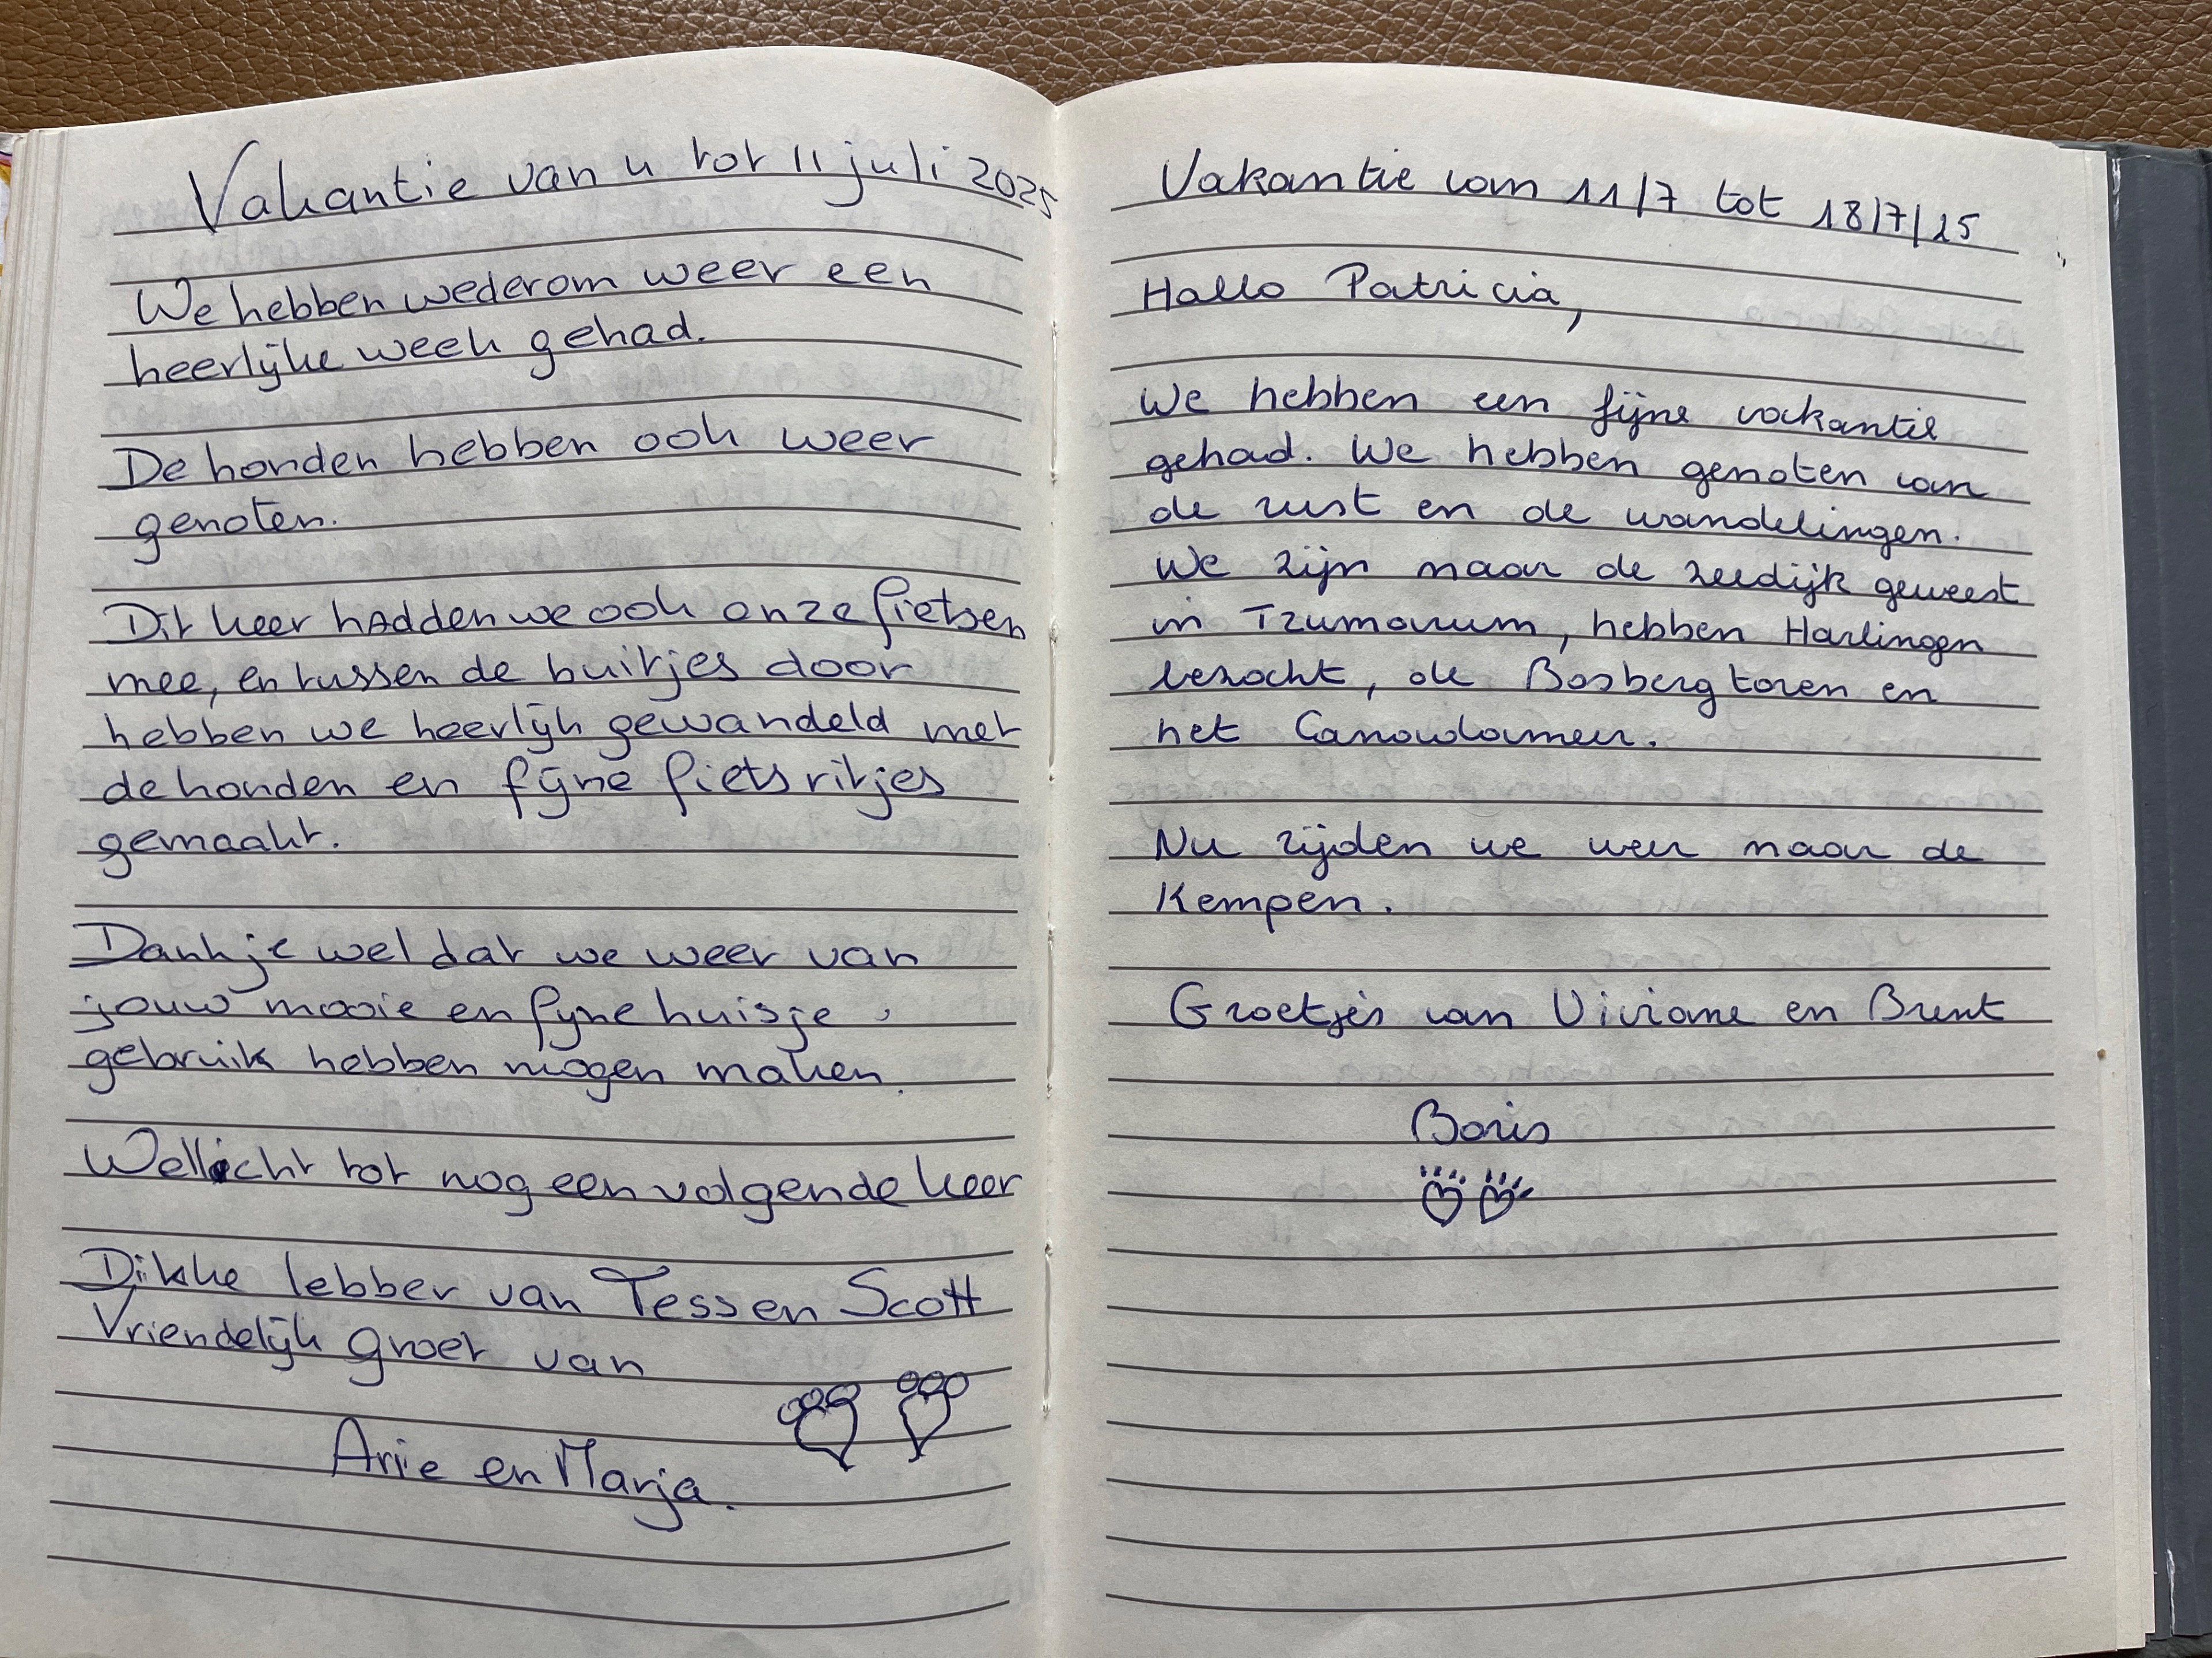 Vakantie van 4 tot 11 juli 2025
We hebben wederom weer een
heerlijke week gehad.
De honden hebben ook weer
genoten.
Dit keer hadden we ook onze fietsen
mee, en tussen de buitjes door
hebben we heerlijk gewandeld met
de honden en fijne fietsritjes
gemaakt.
Dank je wel dat we weer van
jouw mooie en fijne huisje
gebruik hebben mogen maken.
Wellicht tot nog een volgende keer
Dikke lebber van Tess en Scott
Vriendelijk groet van
Arie en Marja.
Vakantie van 11/7 tot 18/7/25
Hallo Patricia,
We hebben een fijne vakantie
gehad. We hebben genoten van
de rust en de wandelingen.
We zijn naar de zeedijk geweest
in Tzumarum, hebben Harlingen
bezocht, de Bosberg toren en
het
Nu rijden we weer naar de
Kempen.
Groetjes van Viviane en Brent
Boris